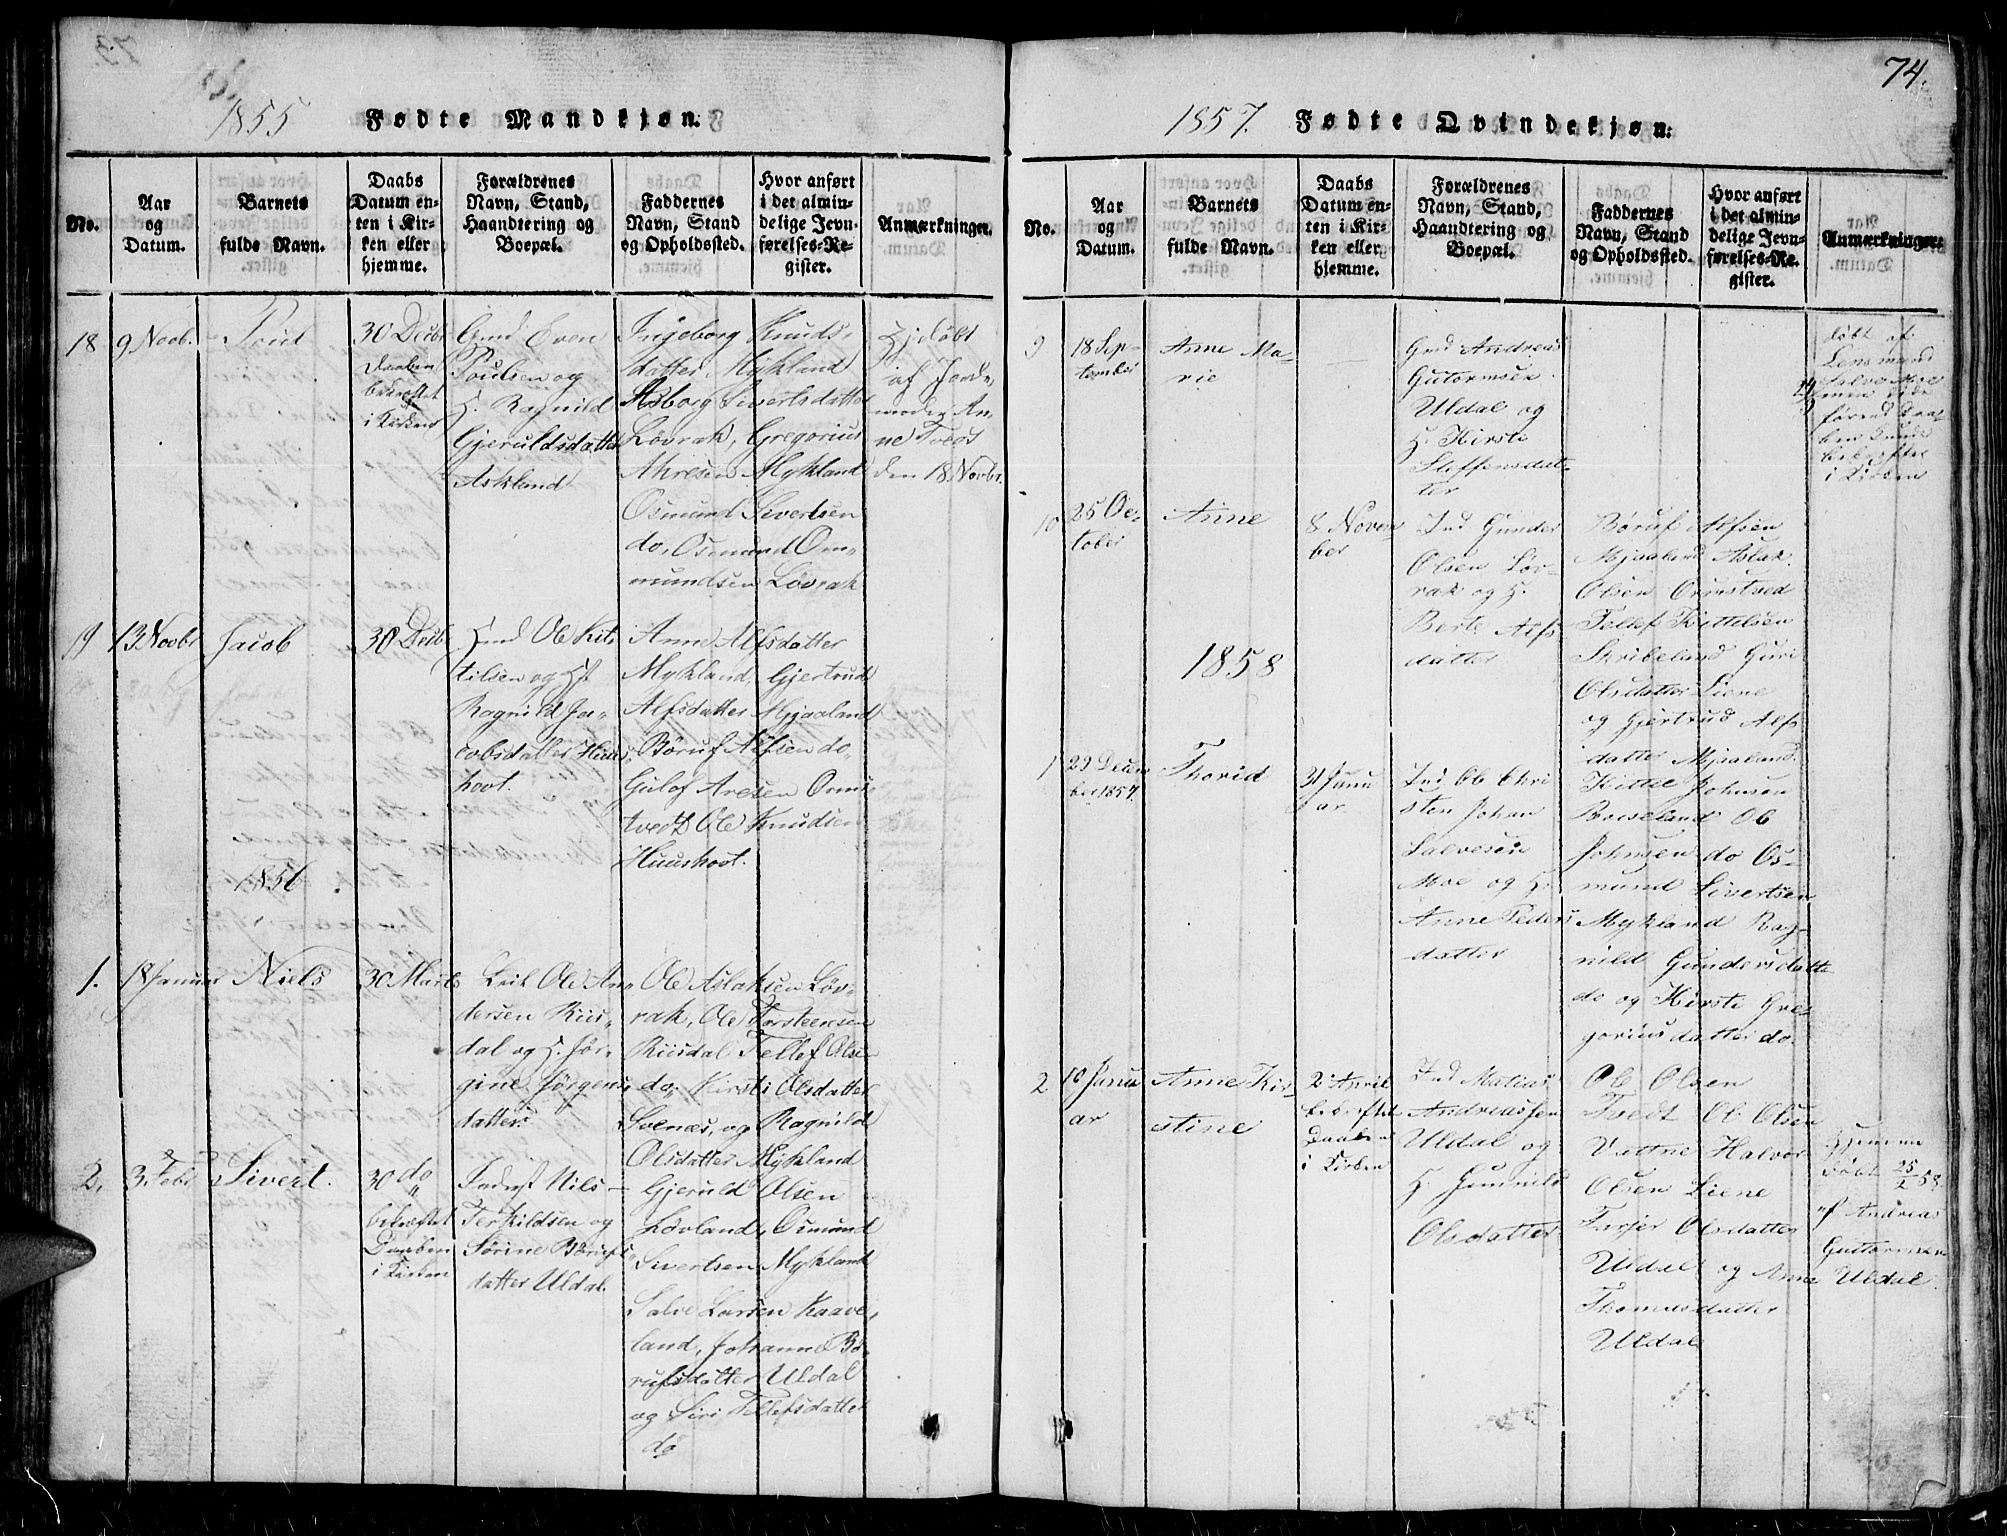 1855 Fødte Mandkjøn.
No.
Aar
og
Datum.
Barnets
fulde Navn.
Daabs
Datum en-
ten i Kir-
ken eller
hjemme.
Forældrenes
Navn, Stand,
Haandtering og
Boepæl.
Faddernes
Navn, Stand
og Opholdssted.
Hvor anført
i det almin-
delige Jevn-
førelses-Re-
gister.
Anmærkninger.
18
9 Novb.
Poul
30 Decbr
Daaben
bekræftet
i Kirken
Gmd Even
Poulsen og
H. Ragnild
Gjeruldsdatter
Askland
Ingeborg Knuds-
datter, Mykland
Asborg Sivertsdatter
Løvrak, Gregorius
Akresen Mykland
Osmund Sivertsen
do, Osmund Om-
mundsen Løvrak
Hjdøbt
af Jorde-
moder An-
ne Tvedt
den 18 Novbr.
19
13 Novbr
Jacob
30 Decb
Ole Kit-
tilsen og
Ragnild Ja-
cobsdatter Huus-
hovt.
Anne Alfsdatter
Mykland, Gjertrud
Alfsdatter Mjaaland
Børuf Alfsen do
Gulof Aresen Omus-
tvedt Ole Knudsen
Huushovt.
1856
1.
18 Januar
Niels
30 Marts
Leil Ole An-
dersen Riis-
dal og H. Jør-
gine Jørgens-
datter
Ole Aslaksen Løv-
rak, Ole Torsteensen
Riisdal Tellef Olsen
do, Kirsti Olsdatter
Svenæs, og Ragnild
Olsdatter Mykland
2.
3 Febr
Sivert.
30 do
bekræftet
Daaben
i Kirken
Inderst Nils
Terkildsen og
Sørine Børufs-
datter Uldal.
Gjeruld Olsen
Lovland, Osmund
Sivertsen Mykland
Salve Larsen Kaave-
land, Johanne Bø-
rufsdatter Uldal
og Siri Tellefsdatter
do
74.
1857. Fødte Qvindekjøn.
No.
Aar
og
Datum.
Barnets
fulde Navn.
Daabs
Datum en-
ten i Kir-
ken eller
hjemme.
Forældrenes
Navn, Stand,
Haandtering og
Boepæl.
Faddernes
Navn, Stand
og Opholdssted.
Hvor anført
i det almin-
delige Jevn-
førelses-Re-
gister.
Anmærkninger.
9
18 Sep-
tember
Anne Ma-
rie
Gmd Andreas
Gutormsen
Uldal og
H. Kirsti
Steffensdat-
ter
døbt af
Lensmand
Salve Moe
men
førend Daa-
ben kunde
bekræftes
i Kirken
10
25 Oc-
tober
Anne
8 Novem
ber
Ind Gunder
Olsen Løv-
rak og H.
Berte Alfs
datter
Børuf Alfsen
Mjaaland Aslak
Olsen Ormstved
Tellef Kittelsen
Skribeland Guri
Olsdatter Liene
og Gjertrud Alfs
datter Mjaaland.
1858
1
29 Decem
ber 1857.
Thorid
31 Janu
ar
Ind Ole Chri
sten Johan
Salvesen
Moe og H.
Anne Peders
datter
Kittel Johnsen
Boiseland Ole
Johnsen do Os-
mund Sivertsen
Mykland Rag-
nild Gundersdatte
do og Kirsti Gre-
gorius datter do.
2
10 Janu
ar
Anne Kir-
stine
2 April
bekræftet
Daaben
i Kirken
Ind Matias
Andreassen
Uldal og
H. Gunnild
Olsdatter
Ole Olsen
Tvedt Ole Olsen
Vattne Halvor
Olsen Liene
Tarjer Olsdatter
Uldal og Anne
Thomasdatter
Uldal
Hjemme
døbt 25/2 58.
af Andreas
Guttormsen
Uldal.